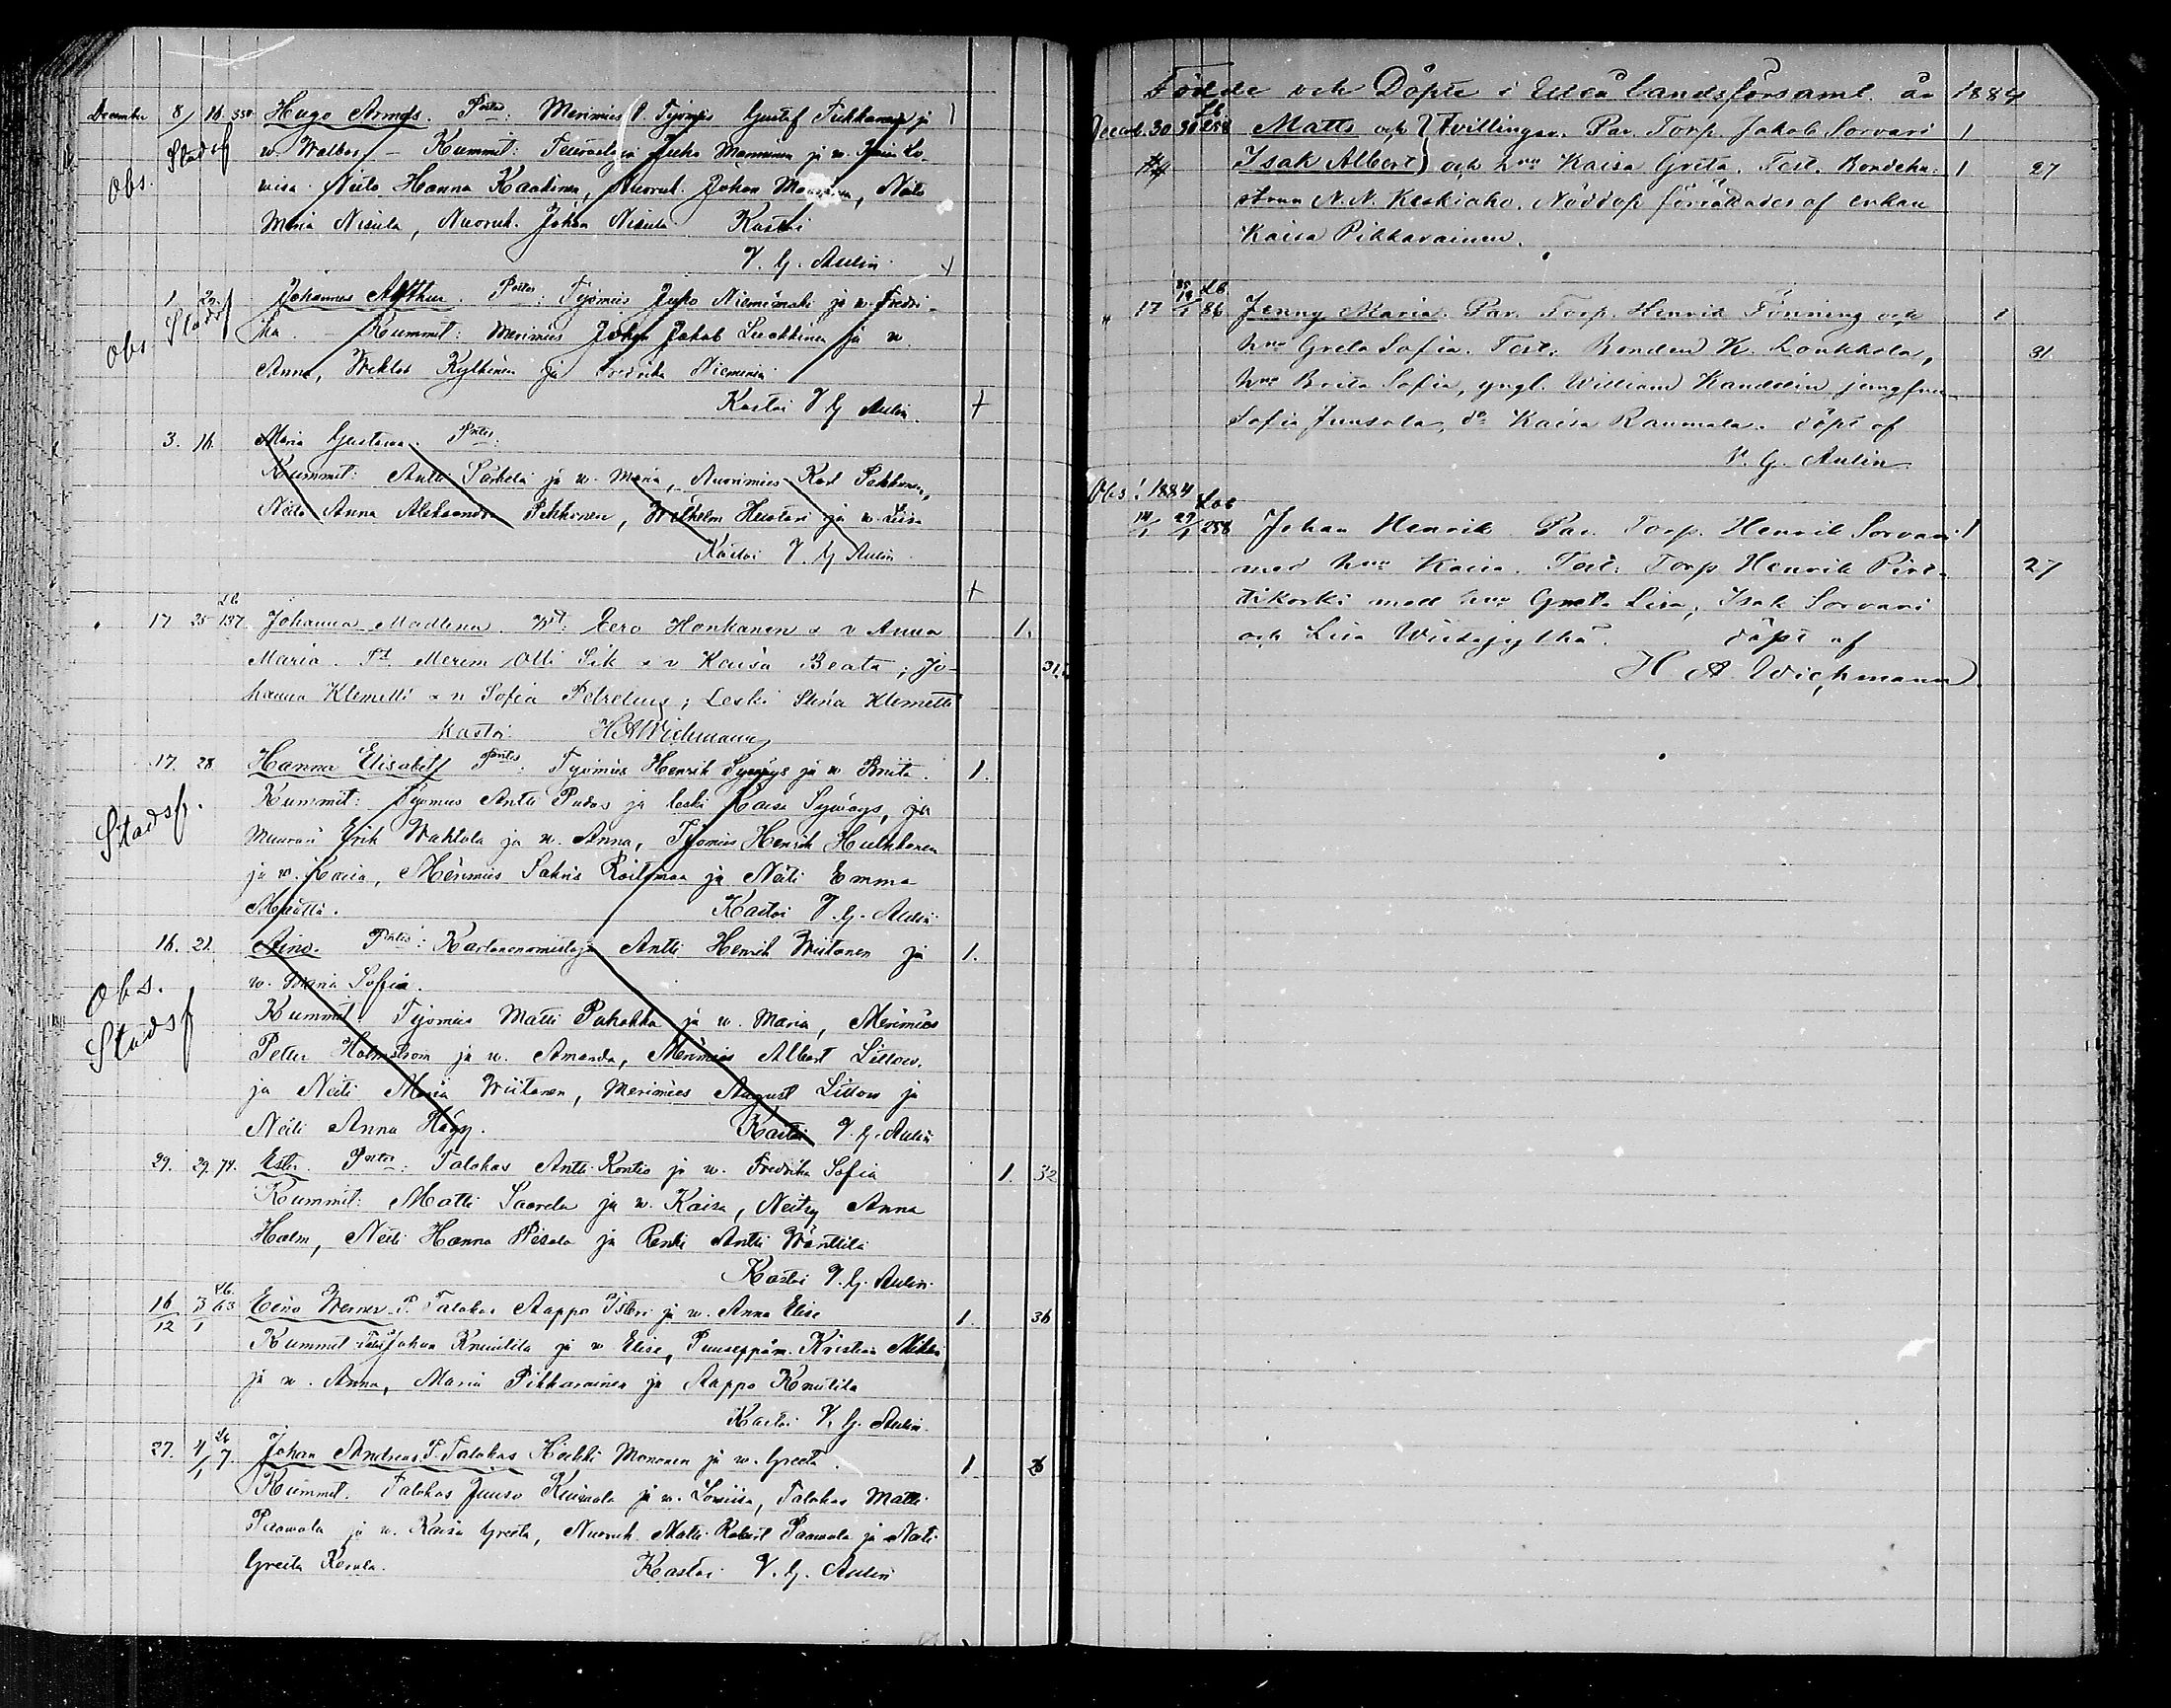 December 8/ 16. 350. Hugo Arvids. P:ter: Merimies l. Tyomies Gustaf Tikkanen ja 1
Obs. Stadsf w. Walbor. – Kummit: Teurastaja Juho Manninen ja w. Lo-
visa. Neito Hanna Kaakinen, Nuoruk. Johan, Neito
Maria Nisula, Nuoruk. Johan Nisula Kastoi
V. G. Aulin +
1 20. Johannes Arthur. P:ter: Tyomies Juho Niemimaki ja w. Fredri-
Obs Stadsf ka – Kummit: Merimies Johan Jakob Luokkinen ja w.
Anna, Wiktor Kylkinen ja Fredrika Niemimä
Kastoi V G Aulin. +
3. 16. Maria Gustava. P:ter:
Kummit: Antti Särkelä ja w. Maria, Nuorimies Karl Pekkonen,
Neito Anna Aleksandra Pekkonen, Wilhelm Huotari ja w. Liisa
Kastoi V. G Aulin
+
17 25 Lb 137 Johanna Madlena. V:t: Eero Honkanen & v Anna 1.
Maria. T:t Merim Olli Sik & v Kaisa Beata; Jo- 31
hanna Klemetti & v Sofia Petrelius; Leski Stina Klemetti
Kastoi H A Wichmann
17. 28. Hanna Elisabet P:ter: Tyomies Henrik Sywäys ja w Briita. 1.
Stadsf. Kummit: Tyomies Antti Pudas ja leski Kaisa Sywäys, ja
Muurari Erik Wahtola ja w. Anna, Tyomies Henrik Hulkkonen
ja w. Kaisa, Merimies Sakris Raitamaa ja Neiti Emma
Määttä. Kastoi V. G. Aulin
16. 21. Aino. P:ter: Kartanonomistaja Antti Henrik Wiitanen ja 1.
Obs. w. Maria Sofia.
Stadsf Kummit Tyomies Matti Pahakka ja w. Maria, Merimies
Petter Holmstrom ja w. Amanda, Merimies Albert Littow.
ja Neiti Maria Wiitanen, Merimies August Littow ja
Neiti Anna Hägg. Kastoi V. G. Aulin
29. 29. 74. Ester. P:ter: Talokas Antti Kontio ja w. Fredrika Sofia 1. 32
Kummit: Matti Saarela ja w. Kaisa, Neitsy Anna
Halm, Neiti Hanna Pesola ja Renki Antti Wänttilä
Kastoi V. G. Aulin.
16/12 3/1 Lb. 63 Eeno Werner. P. Talokas Aappo Isteri ja w. Anna Elise 1. 36
Kummit Talok Johan Knuutila ja w Elise, Puuseppäm. Kristian
ja w. Anna, Maria Pikkarainen ja Aappo Knuutila
Kastoi V. G. Aulin.
27. 4/1 Lb 7. Johan Andreas P. Talokas Heikki Mononen ja w. Greeta. 1 26
Kummit. Talokas Juuso Kuivala ja w. Lowiisa, Talokas Matti
Paawola ja w. Kaisa Greeta, Nuoruk. Matti Robert Paawola ja Neiti
Greeta Kerola. Kastoi V. G. Aulin
Födde och Döpte i Uleå landsförsaml. år 1884
Decemb. 30 30 Lb 258 Matts och } Tvillingar. Par. Torp. Jakob Sorvari 1
Isak Albert } och h:ru Kaisa Greta. Test. Bondehu- 1 27
strun N. N. Keskiaho. Nöddop förrättades af enkan
Kaisa Pikkarainen.
" 17 85 19/1 Lb 86 Jenny Maria. Par. Torp. Henrik Fönning och 1
h:ru Greta Sofia. Test. Bonden K. Loukkola, 31
h:ru Brita Sofia, yngl. William Kandelin jungfrun
Sofia Junsola, d:o Kaisa Raumala. döpt af
V. G. Aulin
Obs! 1884
14/1 27/1 Lbb 258 Johan Henrik Par. Torp. Henrik Sorvari 1
med h:ru Kaisa. Test. Torp Henrik Pirt- 27
tikoski med h:ru Greta Lisa, Isak Sorvari
och Lisa Wiitajylhä. döpt af
H A Wichmann